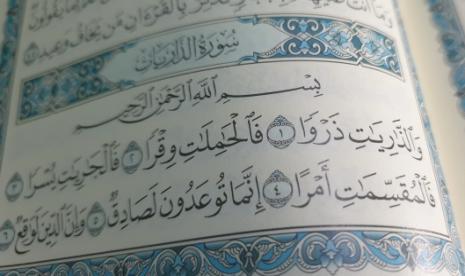 بِٱلْقُرْءَانِ مَن يَخَافُ وَعِيدِ
سُورَةُ الذَّارِيَاتِ
بِسْمِ ٱللَّهِ ٱلرَّحْمَٰنِ ٱلرَّحِيمِ
وَٱلذَّٰرِيَٰتِ ذَرْوًا ١ فَٱلْحَٰمِلَٰتِ وِقْرًا ٢ فَٱلْجَٰرِيَٰتِ يُسْرًا ٣
فَٱلْمُقَسِّمَٰتِ أَمْرًا ٤ إِنَّمَا تُوعَدُونَ لَصَادِقٌ ٥ وَإِنَّ ٱلدِّينَ لَوَٰقِعٌ ٦